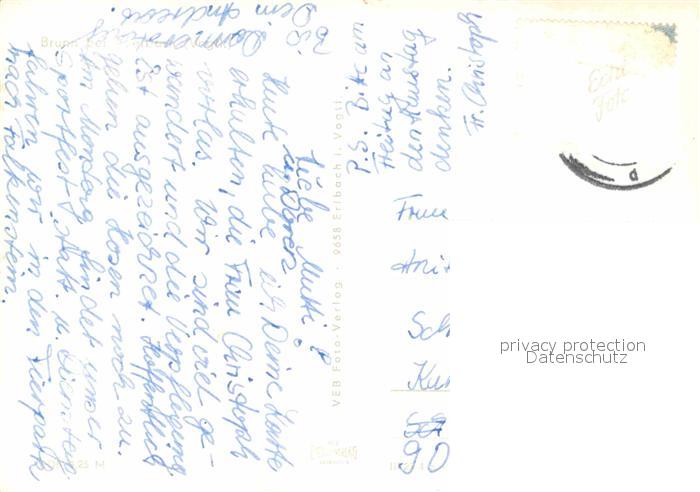 Liebe Mutti!
u. Doreen
Heute habe ich Deine Karte
erhalten, die Frau Christoph
Wir sind viel ge-
wandert und die Verpflegung
ist ausgezeichnet. Hoffentlich
gehen die Hosen noch zu.
Am Montag findet unser
Sportfest statt. u. Dienstag
fahren wir in den Tierpark
nach Falkenstein.
Dein Andreas
P.S. Bitte am
Freitag an
den Haustag
denken.
Fr. Christoph
Frau
Anit
Sch
Kur
90
Brunn bei
VEB Foto-Verlag · 9658 Erlbach i. Vogtl.
Echt
Foto
privacy protection
Datenschutz